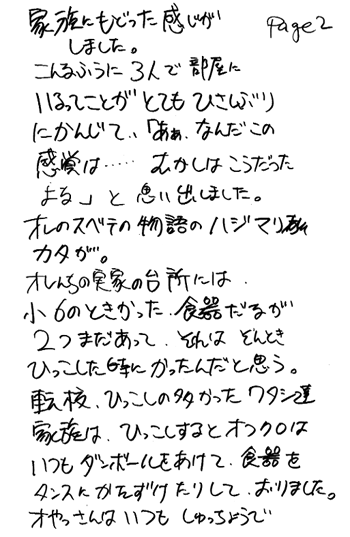 Page2
家族にもどった感じが
しました。
こんなふうに3人で部屋に
いるってことがとてもひさしぶり
にかんじて、「あぁ、なんだこの
感覚は…… むかしはこうだった
よな」と思い出しました。
オレのスベテの物語のハジマリ
カタが。
オレんちの実家の台所には、
小6のときかった、食器だなが
2つまだあって、それは そんとき
ひっこした時にかったんだと思う。
転校、ひっこしの多かったワタシ達
家族は、ひっこしするとオフクロは
いつもダンボールをあけて、食器を
タンスにかたずけたりして、おりました。
オヤっさんはいつも しゅっちょうで